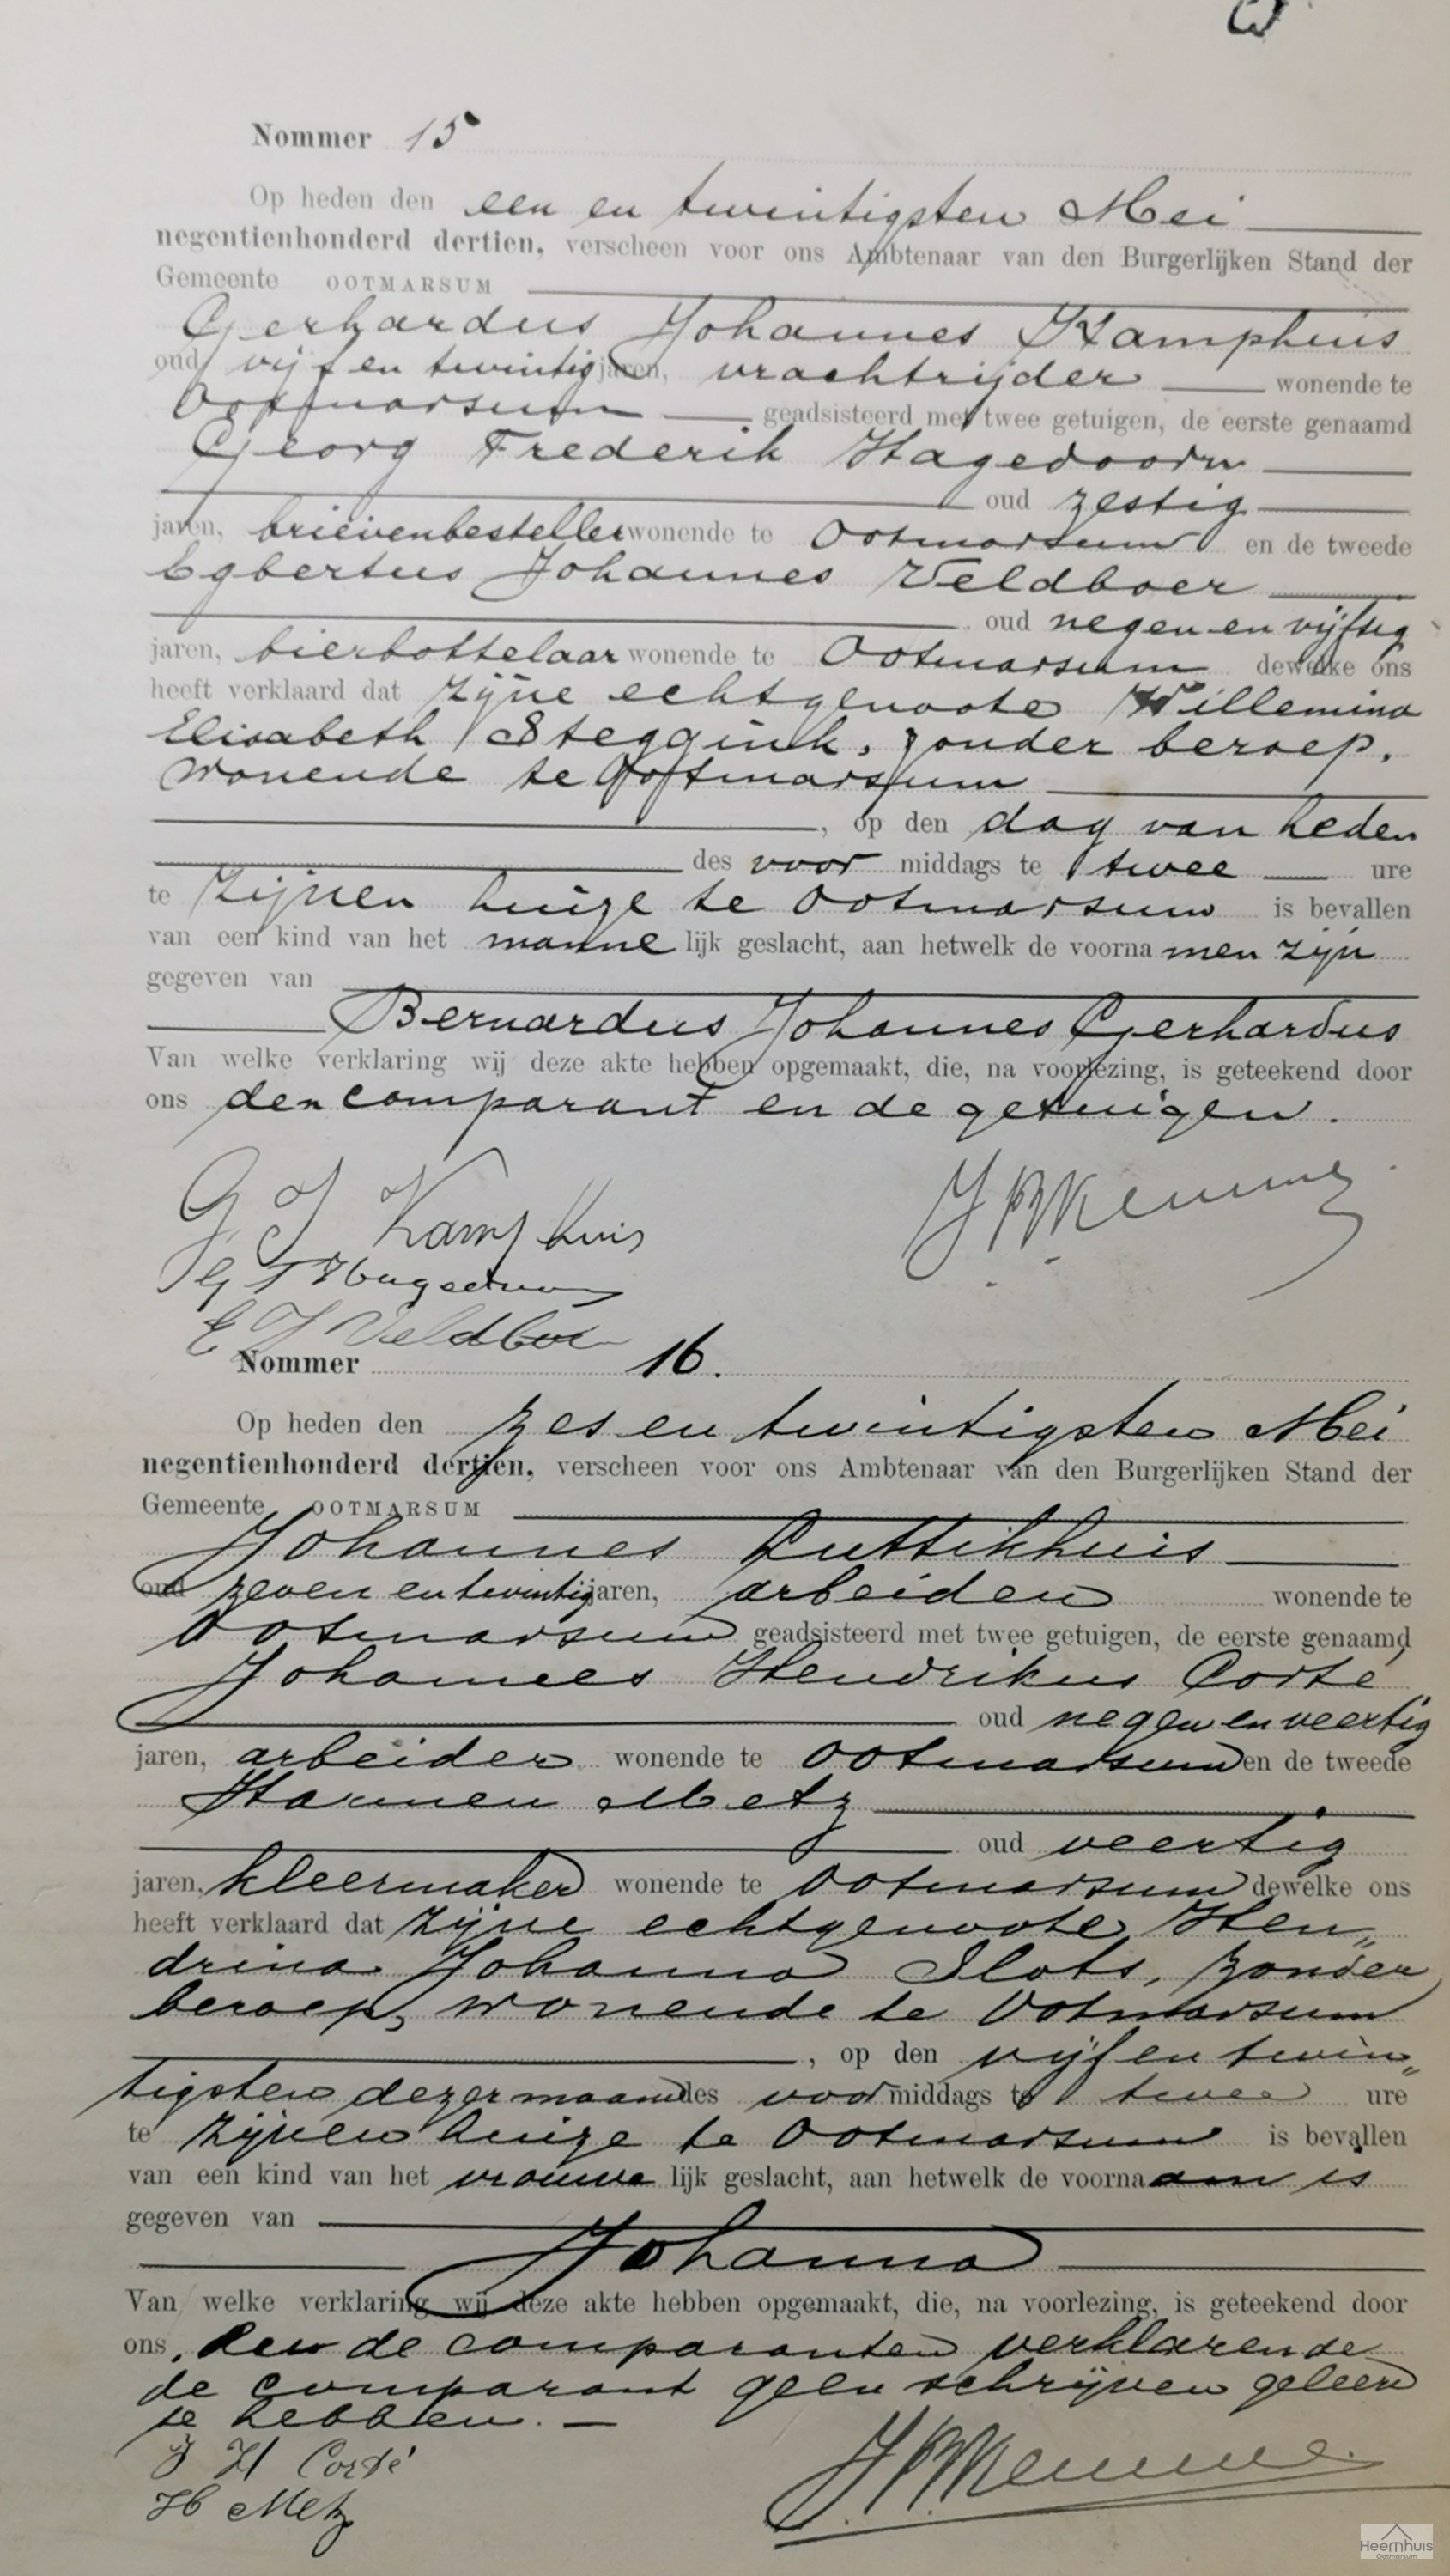 Nommer 15
Op heden den een en twintigsten Mei
negentienhonderd dertien, verscheen voor ons Ambtenaar van den Burgerlijken Stand der
Gemeente OOTMARSUM
Gerhardus Johannes Kamphuis
oud vijf en twintig jaren, vrachtrijder wonende te
Ootmarsum geadsisteerd met twee getuigen, de eerste genaamd
Georg Frederik Hagedoorn
oud zestig
jaren, brievenbesteller wonende te Ootmarsum en de tweede
Egbertus Johannes Veldboer
oud negen en vijftig
jaren, bierbottelaar wonende te Ootmarsum dewelke ons
heeft verklaard dat zijne echtgenoote Willemina
Elisabeth Steggink, zonder beroep,
wonende te Ootmarsum
, op den dag van heden
des voor middags te twee ure
te zijnen huize te Ootmarsum is bevallen
van een kind van het manne lijk geslacht, aan hetwelk de voorna men zijn
gegeven van
Bernardus Johannes Gerhardus
Van welke verklaring wij deze akte hebben opgemaakt, die, na voorlezing, is geteekend door
ons den comparant en de getuigen.
G J Kamphuis
E J Veldboer
Nommer 16.
Op heden den zes en twintigsten Mei
negentienhonderd dertien, verscheen voor ons Ambtenaar van den Burgerlijken Stand der
Gemeente OOTMARSUM
Johannes Luttikhuis
oud zeven en twintig jaren, arbeider wonende te
Ootmarsum geadsisteerd met twee getuigen, de eerste genaamd
Johannes Hendrikus Corté
oud negen en veertig
jaren, arbeider wonende te Ootmarsum en de tweede
Harmen Metz
oud veertig
jaren, kleermaker wonende te Ootmarsum dewelke ons
heeft verklaard dat zijne echtgenoote Hen„
drina Johanna Slots, zonder
beroep, wonende te Ootmarsum
, op den vijf en twin„
tigsten dezer maand des voor middags te twee ure
te zijnen huize te Ootmarsum is bevallen
van een kind van het vrouwe lijk geslacht, aan hetwelk de voorna am is
gegeven van
Johanna
Van welke verklaring wij deze akte hebben opgemaakt, die, na voorlezing, is geteekend door
ons, de comparanten verklarende
de comparant geen schrijven geleerd
te hebben.
J H Corté
H Metz
Heemhuis
Ootmarsum